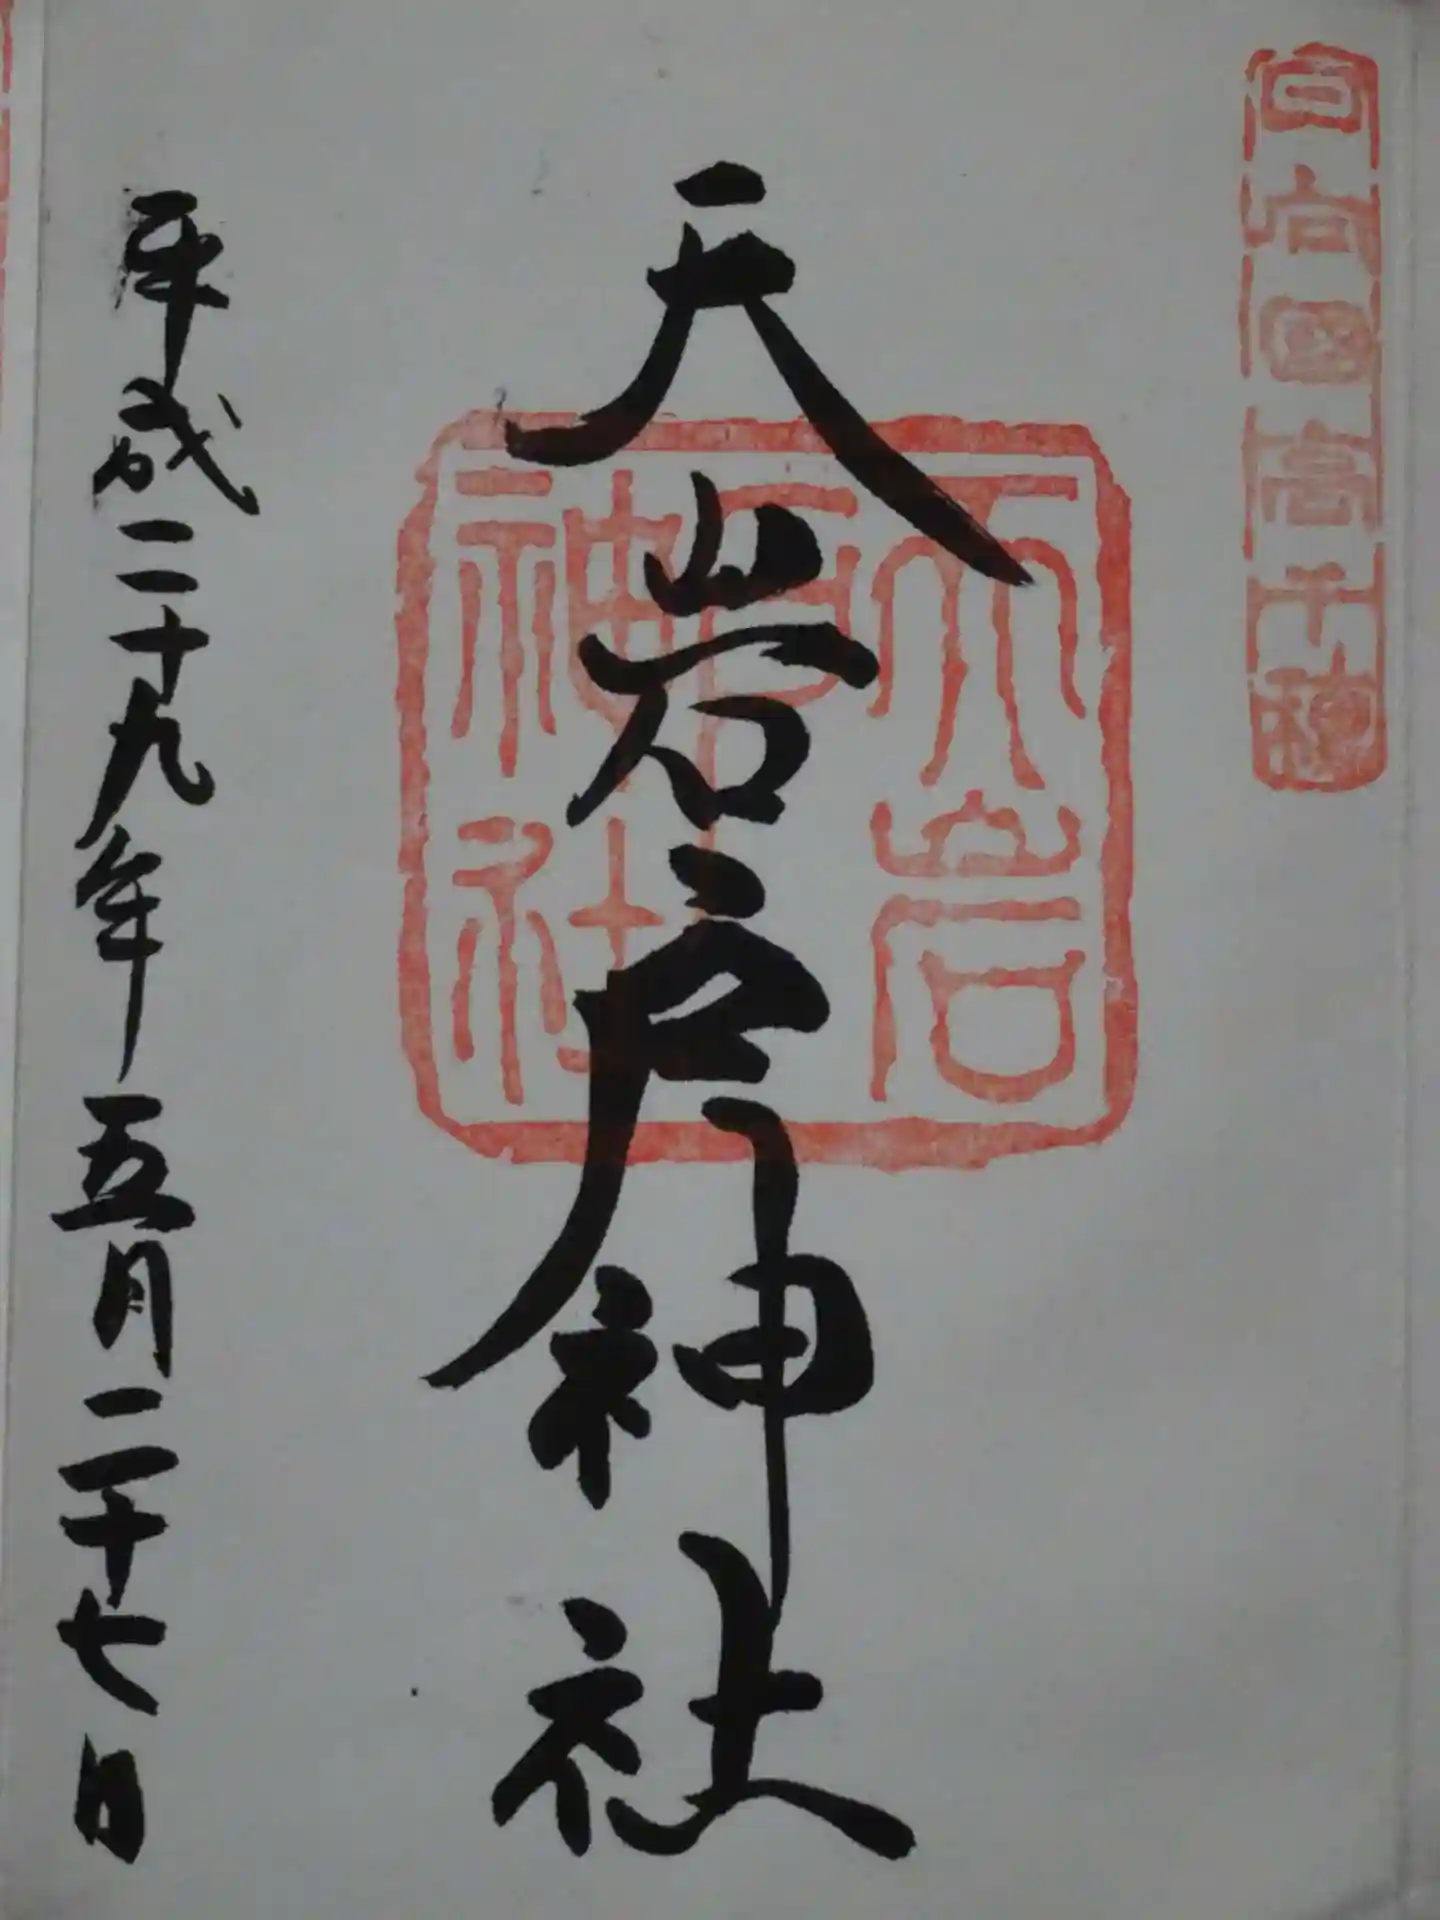 日向國高千穂
天岩戸神社
天岩
戸
神社
平成二十九年五月二十七日